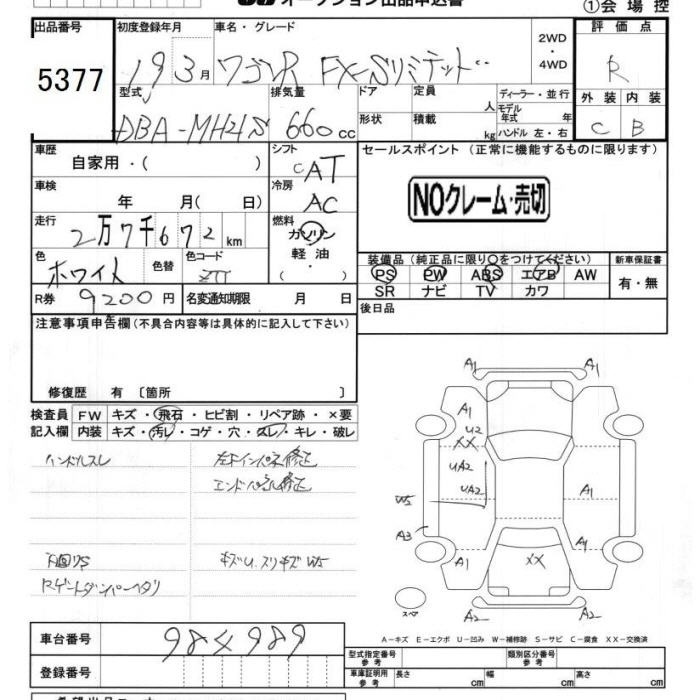 オークション出品申込書
①会場控
出品番号 初度登録年月 車名・グレード 評価点
5377 19 3月 ワゴンR FX-Sリミテッド 2WD・4WD R
型式 排気量 ドア 定員 ディーラー・並行 外装 内装
人 モデル年式 年
DBA-MH21S 660cc 形状 積載 kg ハンドル 左・右 C B
車歴 シフト セールスポイント (正常に機能するものに限ります)
自家用・( ) AT
車検 冷房 NOクレーム・売切
年 月( 日) AC
走行 燃料
2万7千672km ガソリン
軽油
・( )
色 色替 色コード 装備品(純正品に限り○をつけてください) 新車保証書
ホワイト PS PW ABS エアB AW 有・無
SR ナビ TV カワ
R券 9200円 名変通知期限 月 日 後日品
注意事項申告欄(不具合内容等は具体的に記入して下さい)
修復歴 有 〔箇所 〕
検査員 FW キズ・飛石・ヒビ割・リペア跡・×要
記入欄 内装 キズ・汚レ・コゲ・穴・スレ・キレ・破レ
ハンドルスレ 左右インパネ修正
エンドパネル修正
下回りS キズU.スリキズW5
Rゲートダンパーヘタリ
A1 A1
A1
U2
XX
UA2
UA2
W5
A1
A3
A1
A1
XX
スペア
A2 A2
A-キズ E-エクボ U-凹み W-補修跡 S-サビ C-腐食 XX-交換済
車台番号 984989
型式指定番号 参考 類別区分番号 参考
登録番号 車庫証明用 参考 長さ cm 幅 cm 高さ cm